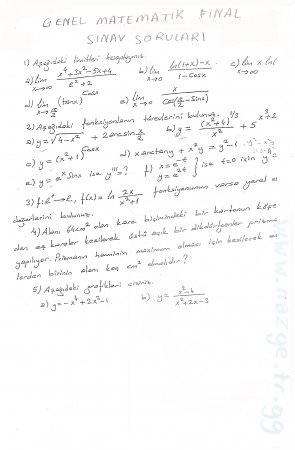 GENEL MATEMATİK FİNAL
SINAV SORULARI
1) Aşağıdaki limitleri hesaplayınız.
a) lim x→∞ (x⁴+3x²-5x+4)/(eˣ+2) b) lim x→0 (ln(1+x)-x)/(1-Cosx) c) lim x→∞ x ln(
d) lim x→π/2 (tanx)^Cosx e) lim x→0 x/Cos(π/2-Sinx)
2) Aşağıdaki fonksiyonların türevlerini bulunuz.
a) y=√(4-x²) + 2arcsin x/2 b) y= (x²+4)^(1/3)/x² + 5^(x³+2)
c) y=(x²+1)^Cosx d) xarctany + x²y = y²-1
e) y=eˣSinx ise y'''=? f) x=e^(-t) y=e^(2t) } ise t=0 için
3) f:R⁺→R, f(x)=ln 2x/(x²+1) fonksiyonunun varsa yerel
değerlerini bulunuz.
4) Alanı 64cm² olan kare biçimindeki bir kartonun köşe
den eş kareler kesilerek üstü açık bir dikdörtgenler prizma
yapılıyor. Prizmanın hacminin maximum olması için kesilecek
lerden birinin alanı kaç cm² olmalıdır?
5) Aşağıdaki grafikleri çiziniz.
a) y=-x⁴+2x²-1 b) y= (x²-4)/(x²+2x-3)